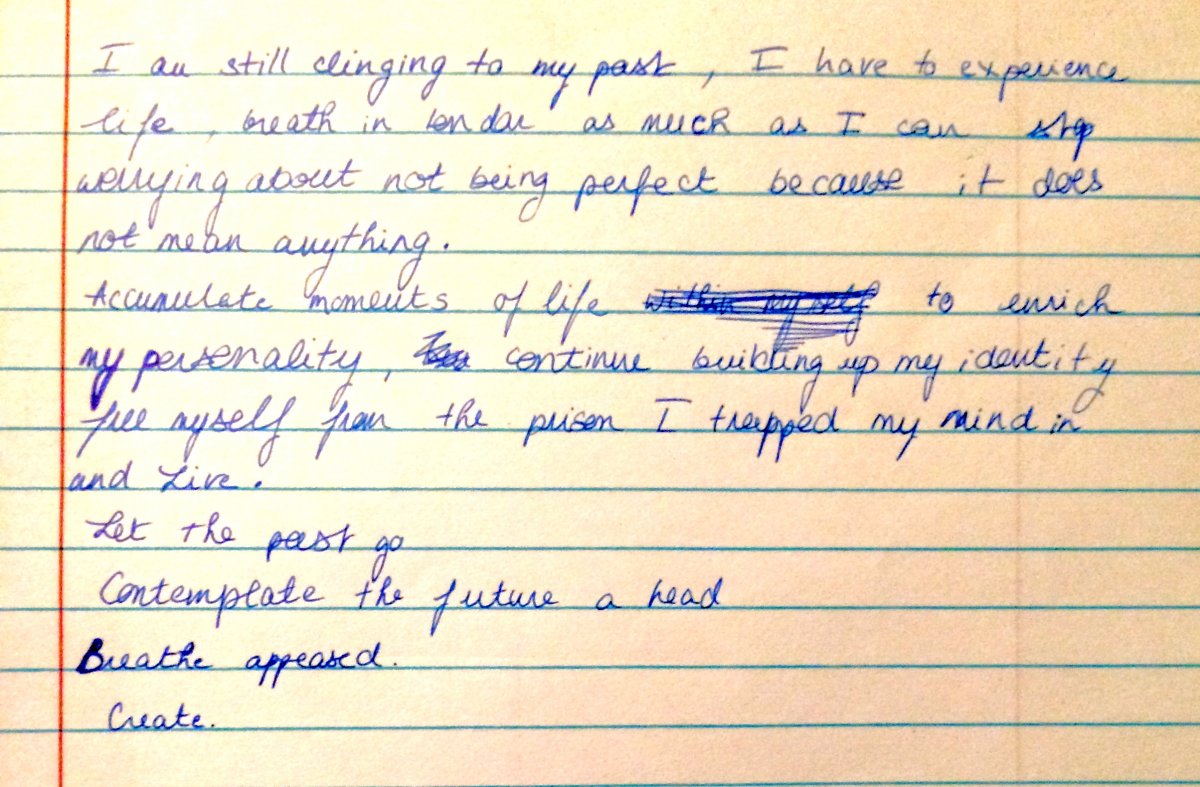 I am still clinging to my past, I have to experience
life, breath in London as much as I can stop
worrying about not being perfect because it does
not mean anything.
Accumulate moments of life within myself to enrich
my personality, continue building up my identity
free myself from the prison I trapped my mind in
and Live.
Let the past go
Contemplate the future a head
Breathe appeased.
Create.